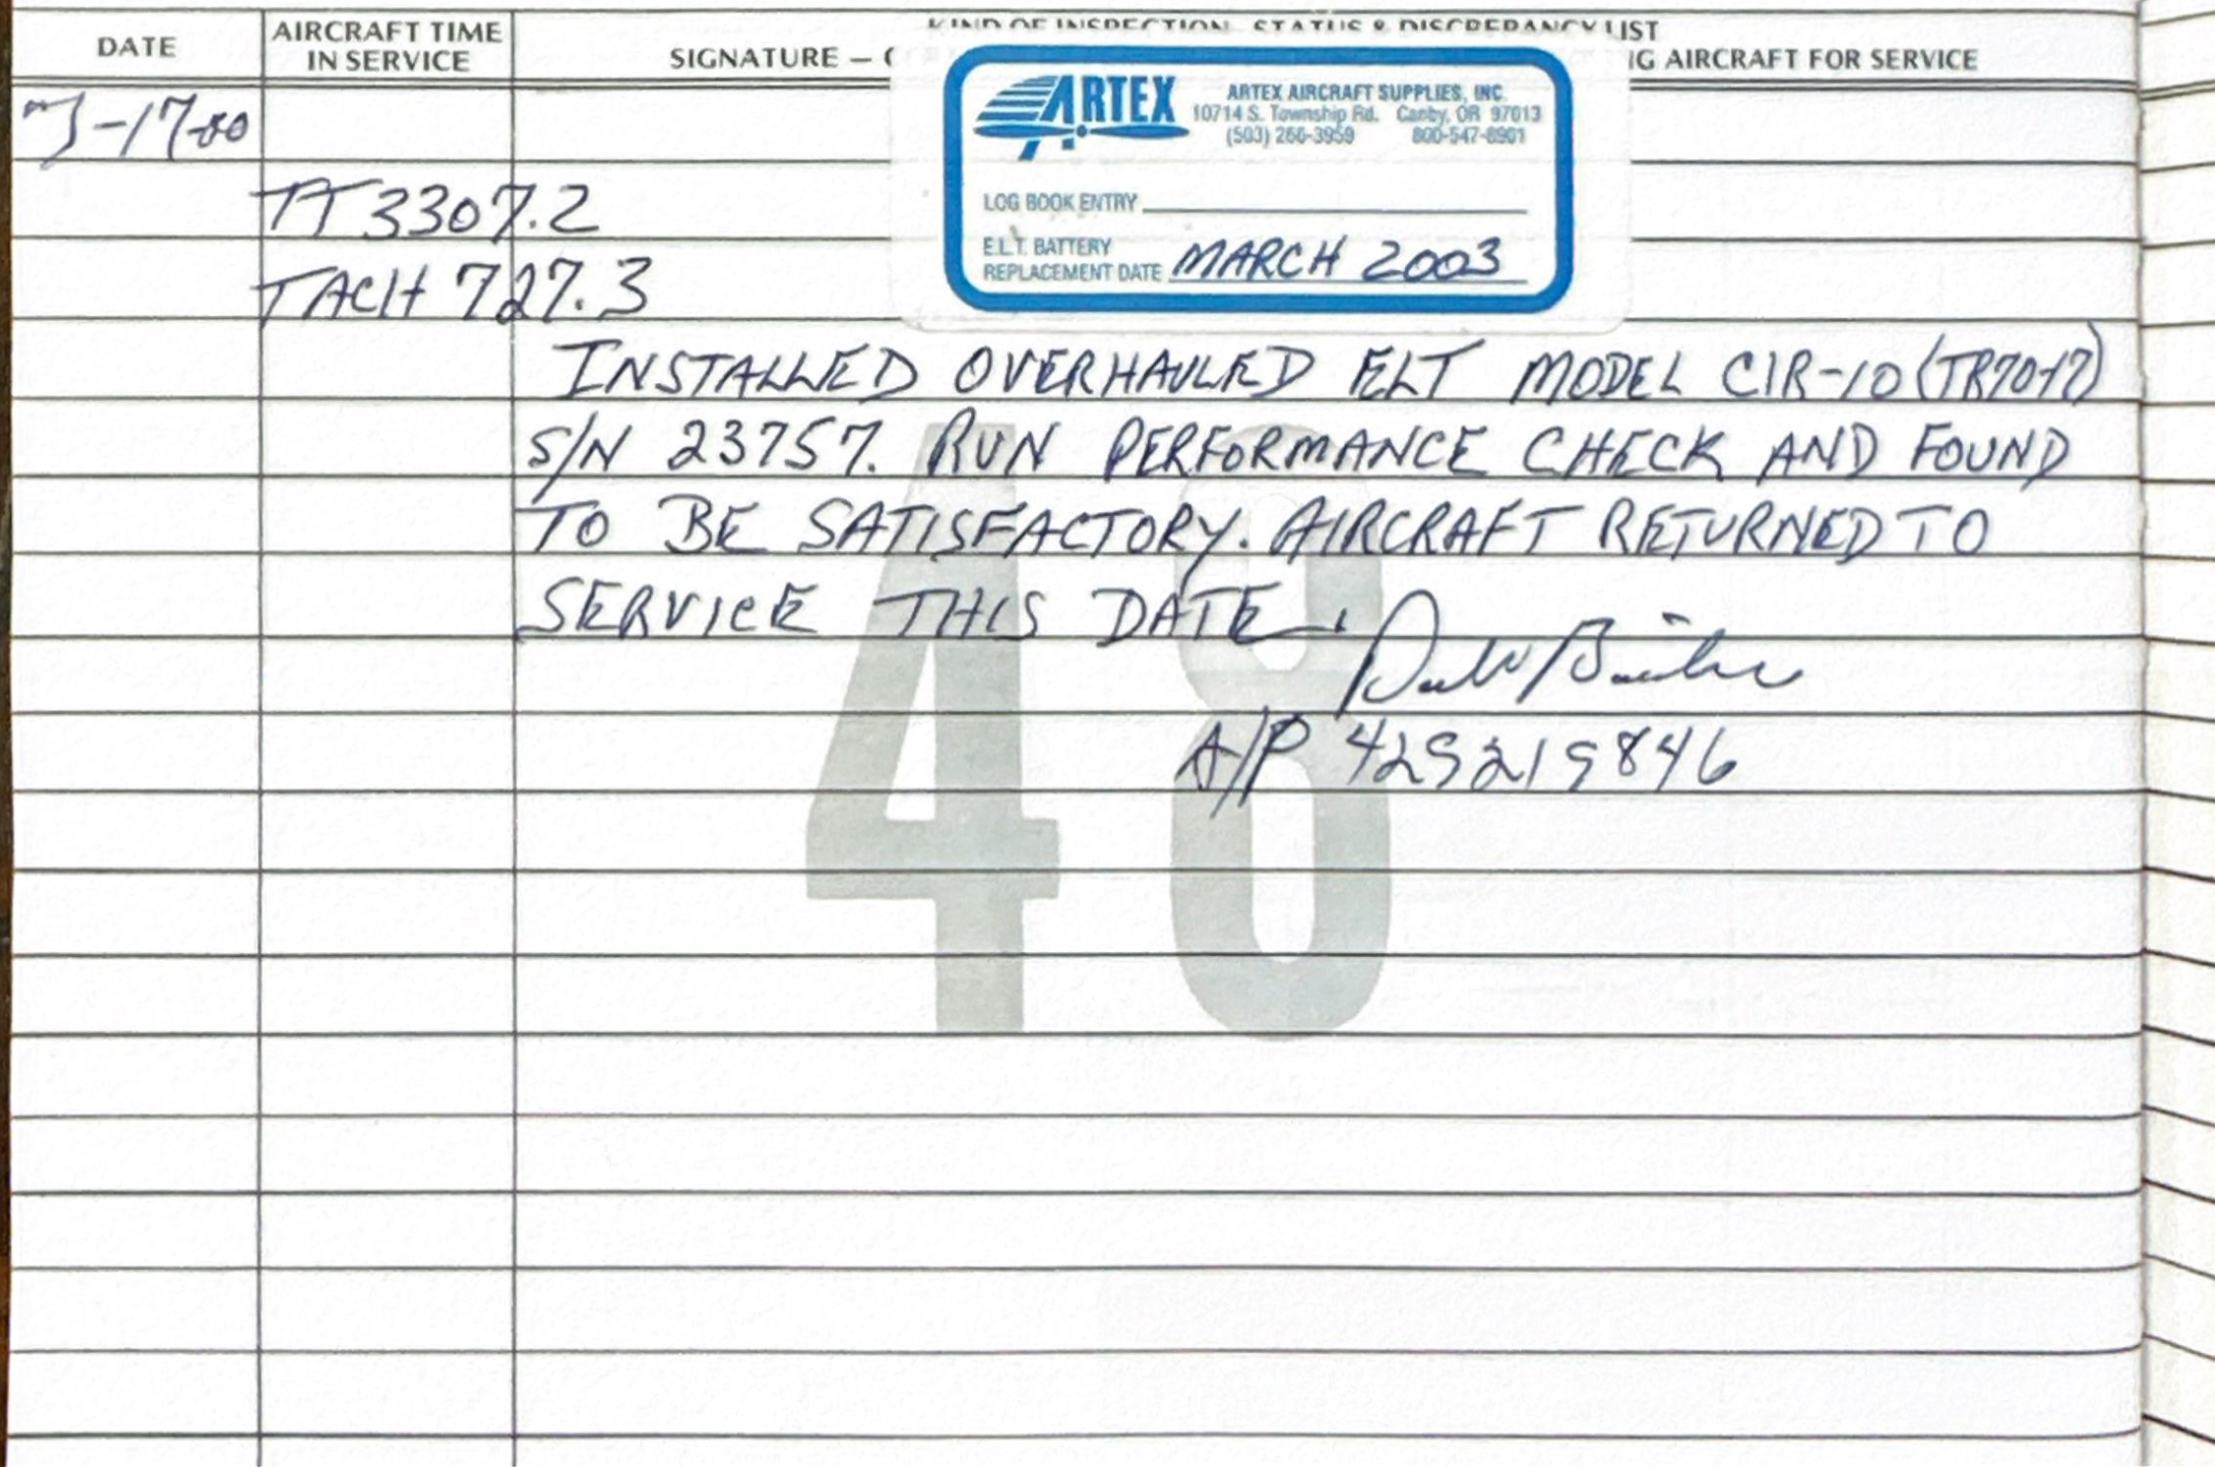 KIND OF INSPECTION, STATUS & DISCREPANCY LIST
DATE
AIRCRAFT TIME
IN SERVICE
SIGNATURE —
AIRCRAFT FOR SERVICE
ARTEX
ARTEX AIRCRAFT SUPPLIES, INC.
10714 S. Township Rd. Canby, OR 97013
(503) 266-3959 800-547-8901
LOG BOOK ENTRY
E.L.T. BATTERY
REPLACEMENT DATE MARCH 2003
-17-00
TT 3307.2
TACH 727.3
INSTALLED OVERHAULED ELT MODEL CIR-10 (TR70-17)
S/N 23757. RUN PERFORMANCE CHECK AND FOUND
TO BE SATISFACTORY. AIRCRAFT RETURNED TO
SERVICE THIS DATE.
A/P 429219846
48